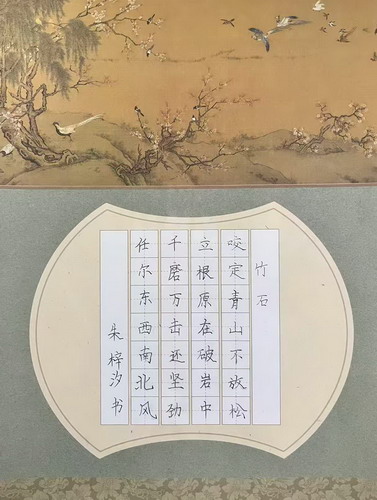 竹石
咬定青山不放松
立根原在破岩中
千磨万击还坚劲
任尔东西南北风
朱梓汐书